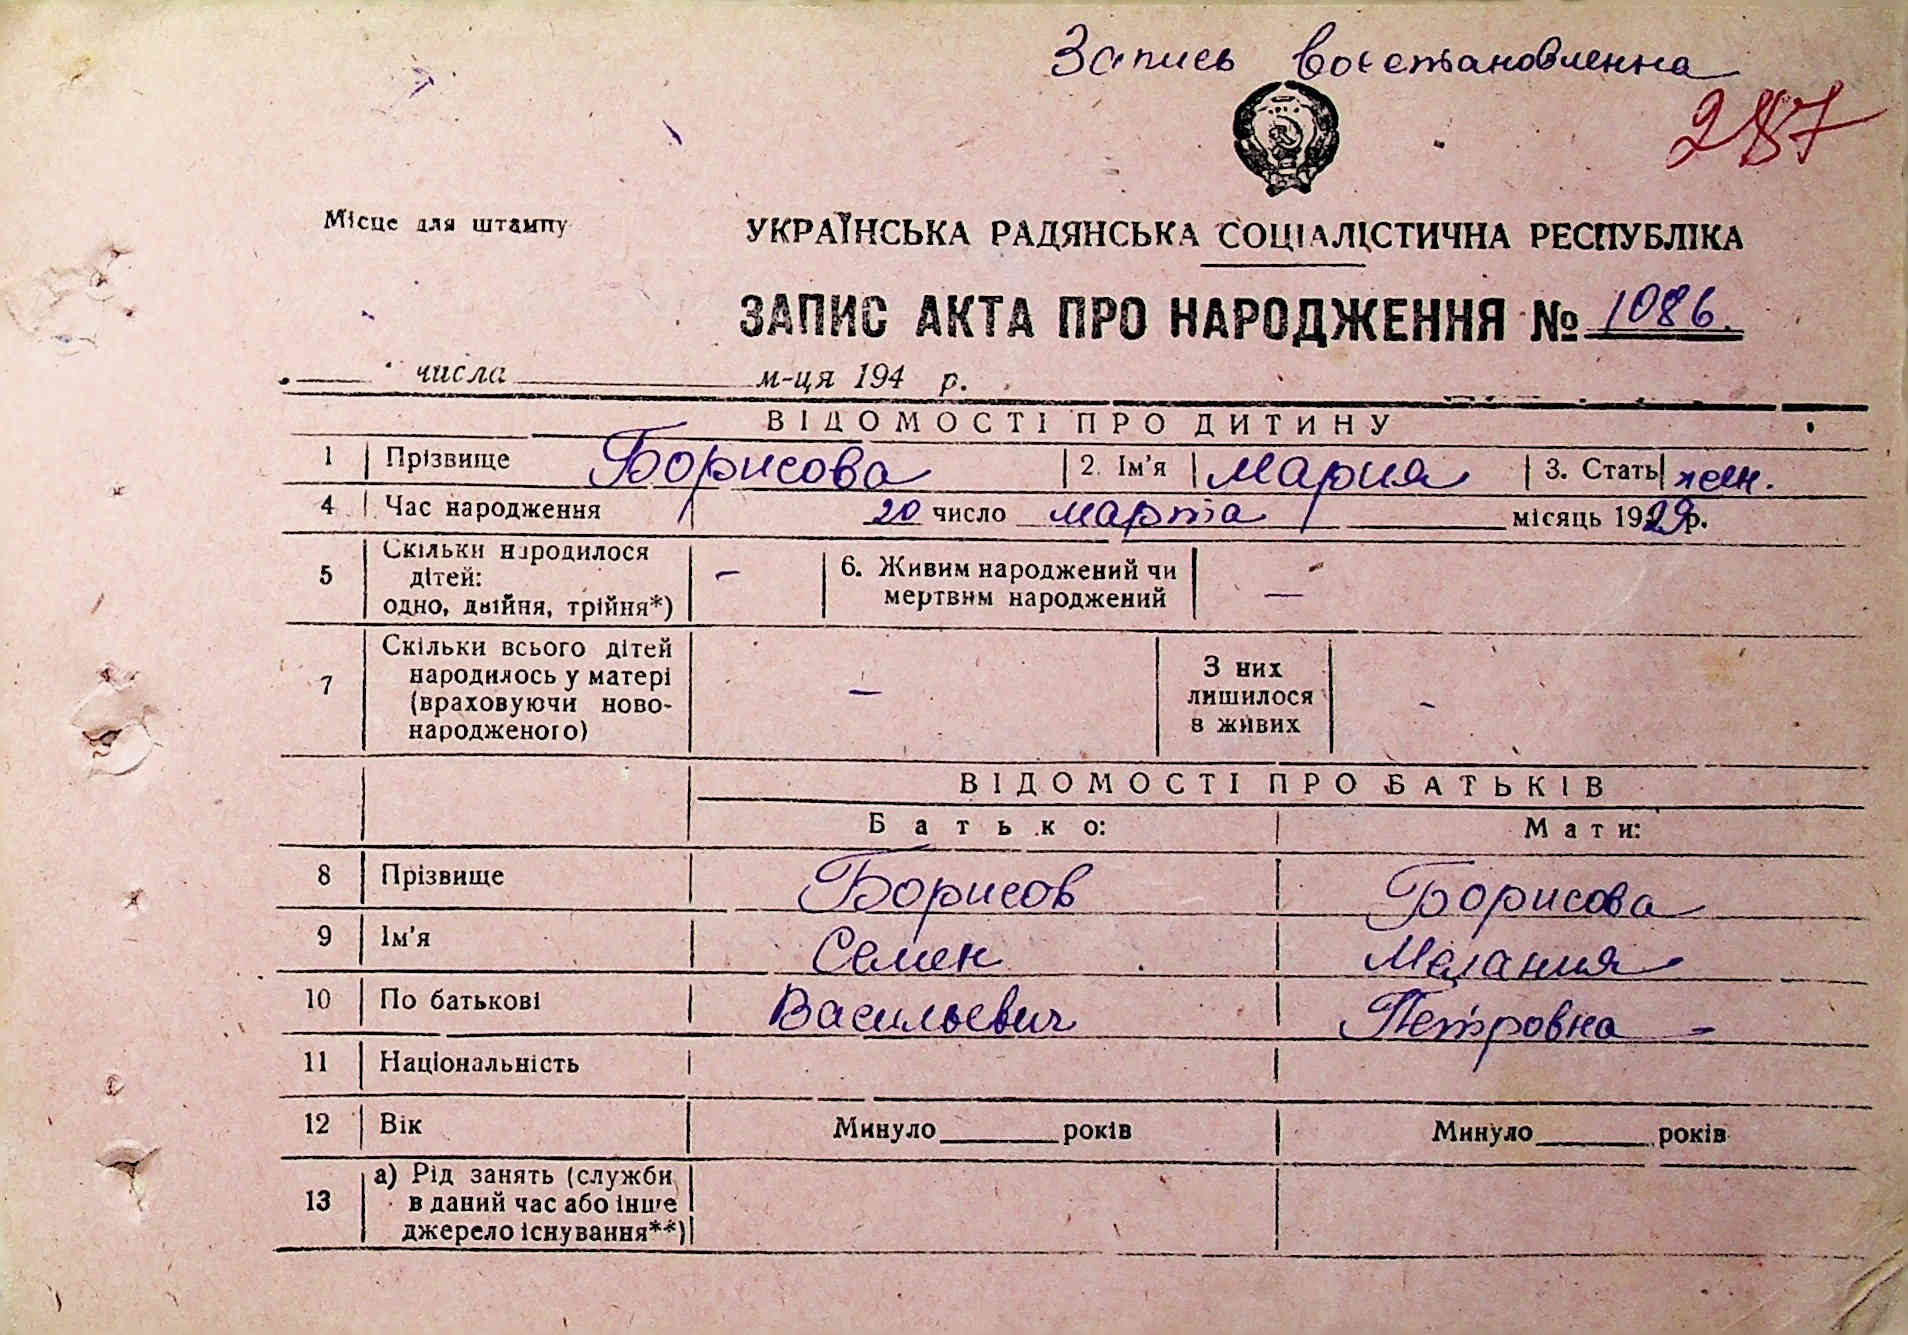 Запись восстановленна
287
Місце для штампу
УКРАЇНСЬКА РАДЯНСЬКА СОЦІАЛІСТИЧНА РЕСПУБЛІКА
ЗАПИС АКТА ПРО НАРОДЖЕННЯ № 1086.
числа м-ця 194 р.
ВІДОМОСТІ ПРО ДИТИНУ
1 Прізвище Борисова 2. Ім'я Мария 3. Стать жен.
4 Час народження 20 число марта місяць 1929 р.
5 Скільки народилося дітей: одно, двійня, трійня*) – 6. Живим народжений чи мертвим народжений —
7 Скільки всього дітей народилось у матері (враховуючи ново-народженого) – З них лишилося в живих -
ВІДОМОСТІ ПРО БАТЬКІВ
Батько: Мати:
8 Прізвище Борисов Борисова
9 Ім'я Семен Мелания
10 По батькові Васильевич Петровна
11 Національність
12 Вік Минуло______років Минуло______років
13 а) Рід занять (служби в даний час або інше джерело існування**)